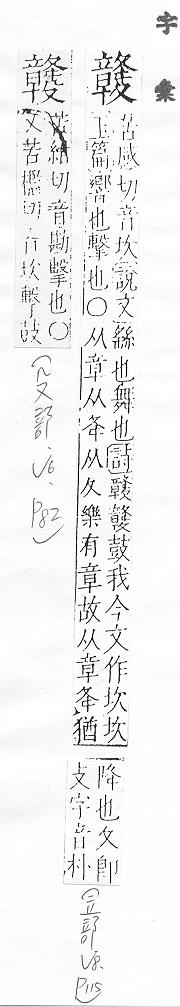 字彙
竷
苦感切音坎說文繇也舞也詩竷竷鼓我今文作坎坎
玉篇響也擊也〇从章从夅从夂樂有章故从章夅猶
降也夂卽
攴字音朴
(立部 V8. P115)
竷
苦紺切音勘擊也〇
又苦檻切音坎擊鼓
(攵部 V6. P82)